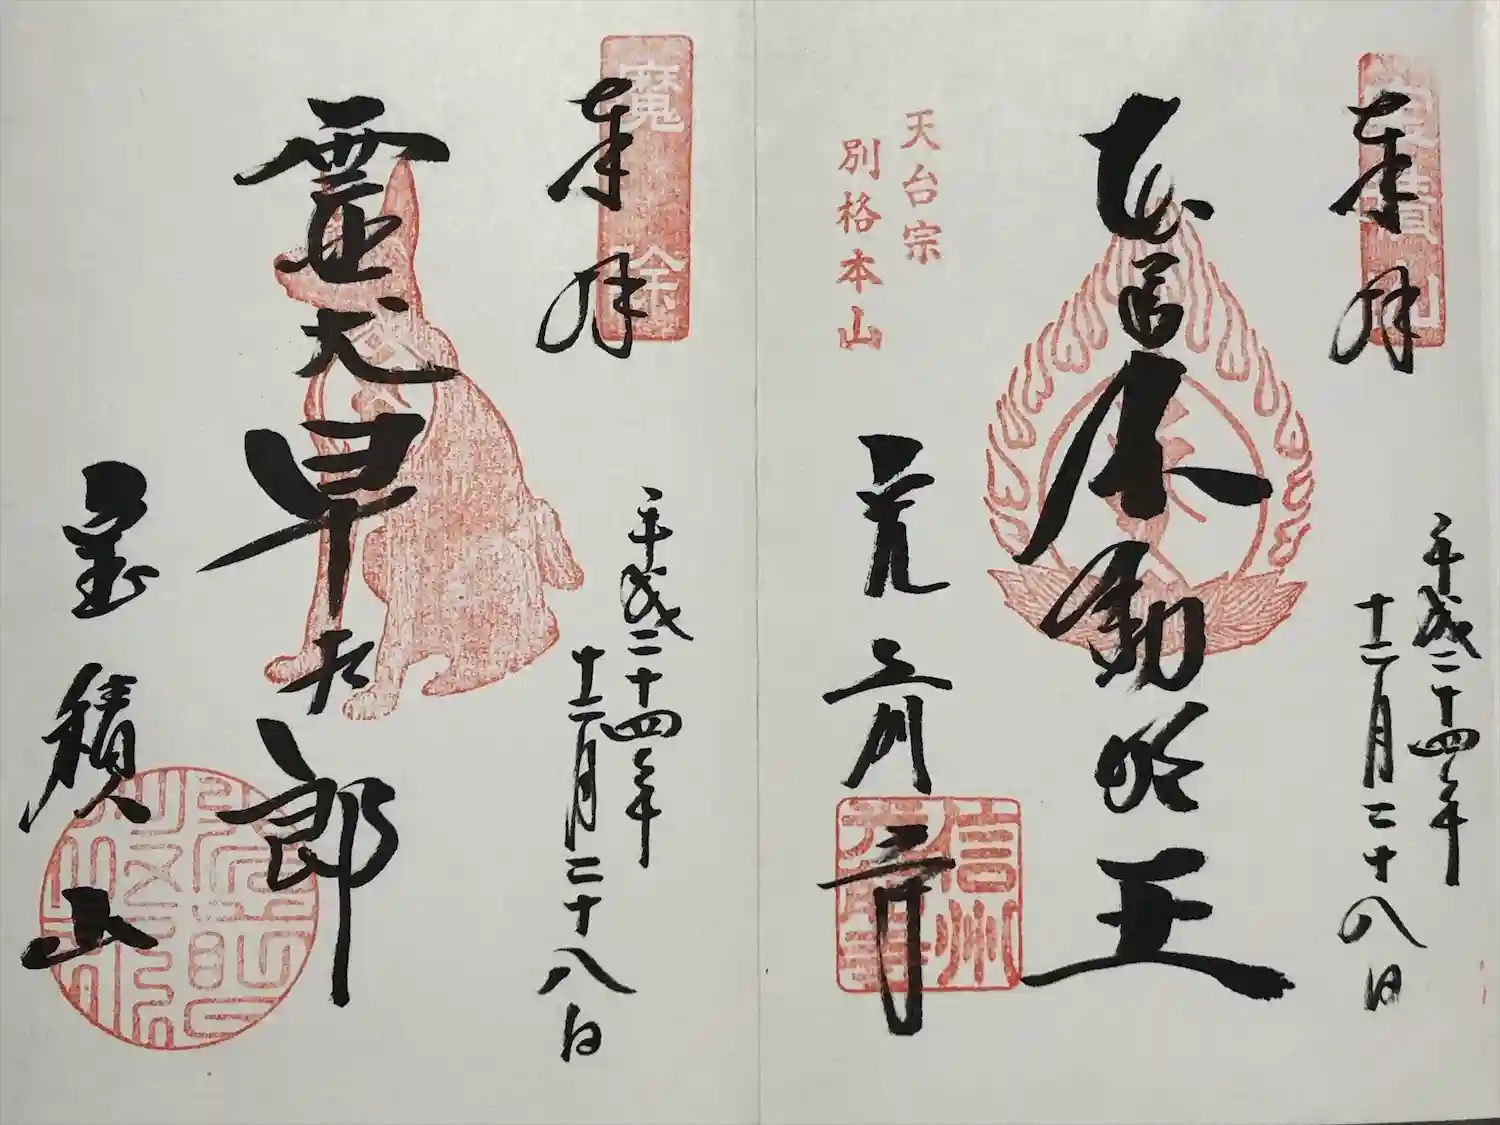 奉拝
寳積山
平成二十四年
十二月二十八日
本尊
不動明王
天台宗
別格本山
元光前寺
信州
光前寺
奉拝
魔除
平成二十四年
十二月二十八日
霊犬
早太郎
宝積山